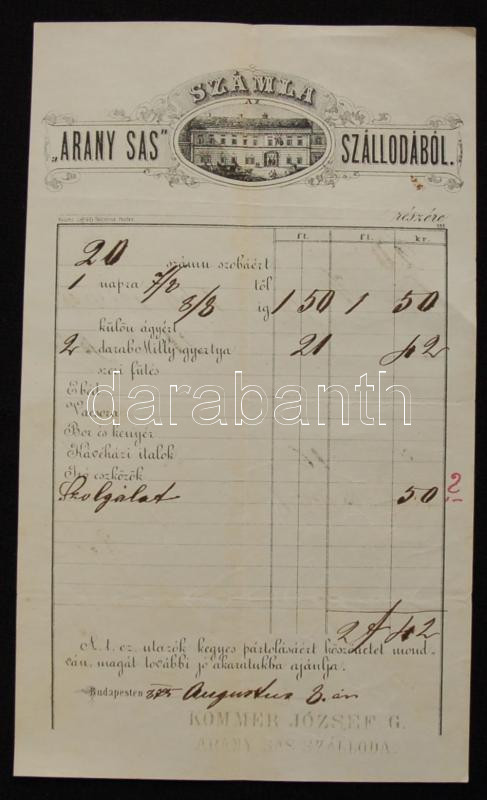 SZÁMLA
AZ
"ARANY SAS" SZÁLLODÁBÓL.
részére
ft. ft. kr.
20 számu szobáért
1 napra 7/8 tól
8/8 ig 1 50 1 50
külön ágyért
2 darab Milly gyertya 21 42
szeri fütés
Ebéd
Vacsora
Bor és kenyér
Kávéházi italok
Iró eszközök
Szolgálat 50 2
2 f 42
A. t. cz. utazók kegyes pártolásáért köszönetet mond-
ván, magát további jó akaratukba ajánlja.
Budapesten 875 Augustus 8.án
KOMMER JÓZSEF G.
ARANY SAS SZÁLLODA.
darabanth